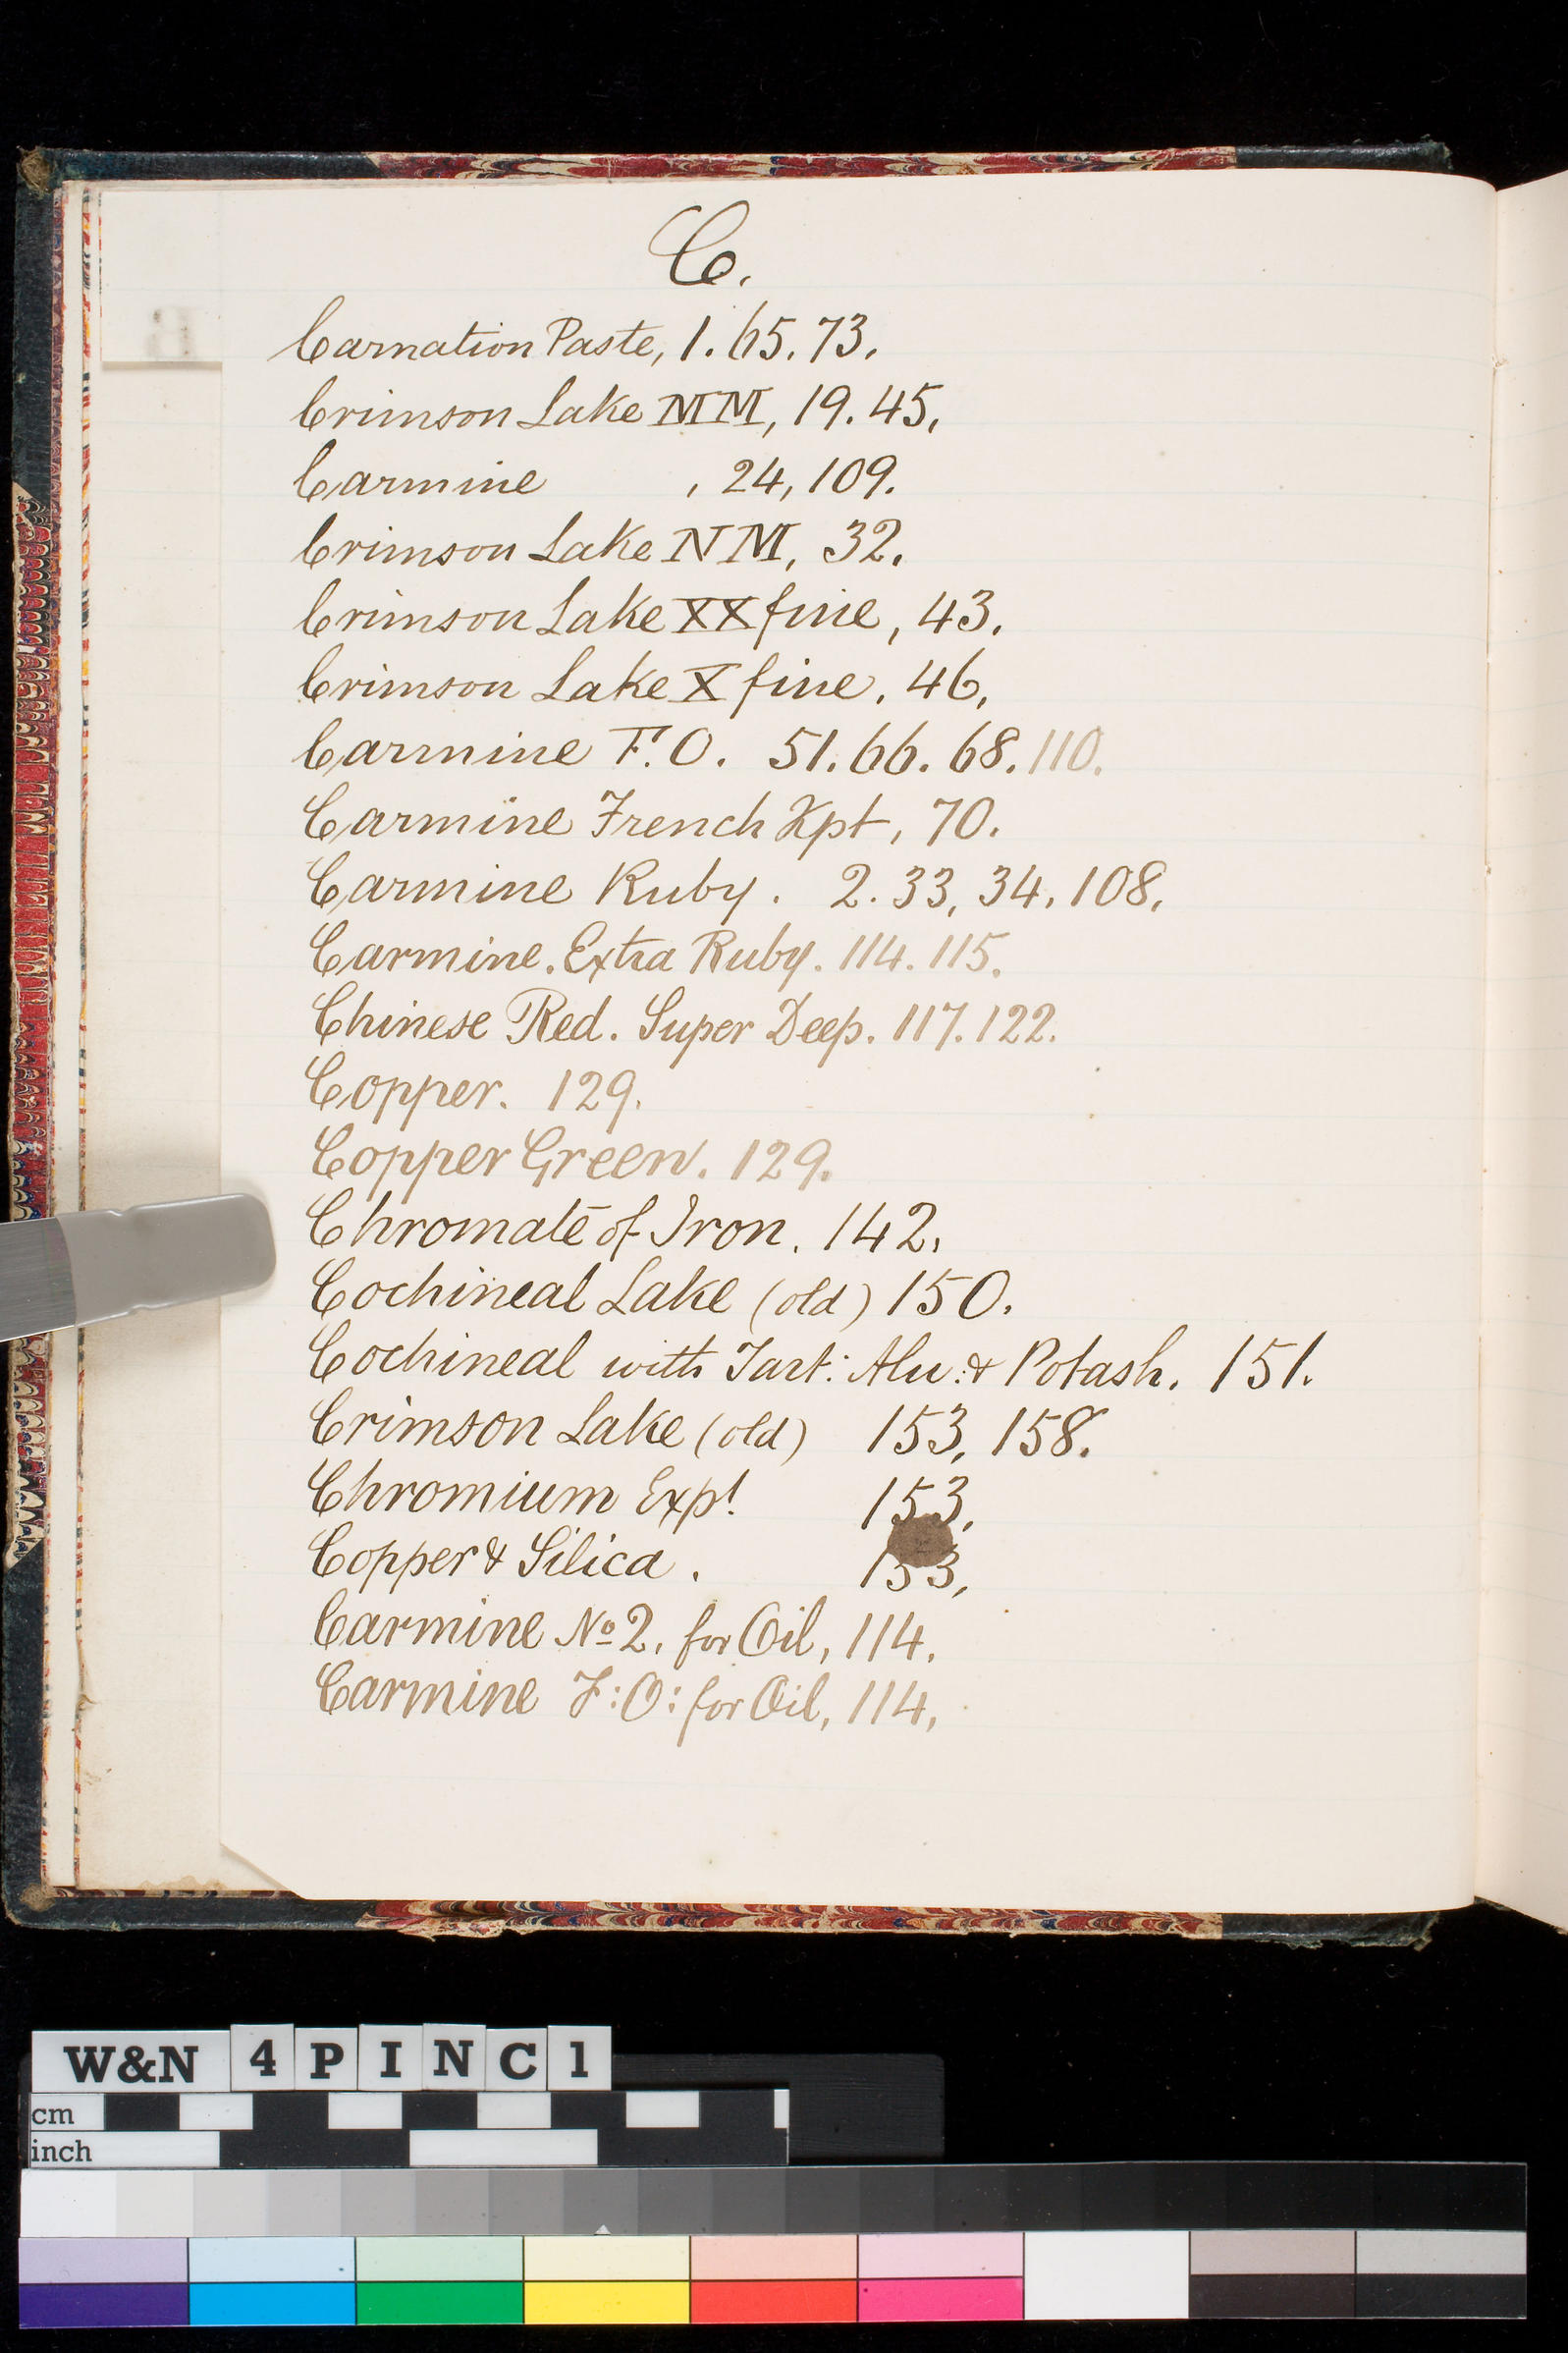 C.
Carnation Paste, 1. 65. 73.
Crimson Lake MM, 19. 45,
Carmine , 24, 109.
Crimson Lake NM, 32.
Crimson Lake XX fine, 43.
Crimson Lake X fine, 46,
Carmine F.O. 51. 66. 68. 110.
Carmine French Xpt, 70.
Carmine Ruby. 2. 33, 34, 108,
Carmine. Extra Ruby. 114. 115.
Chinese Red. Super Deep. 117. 122.
Copper. 129.
Copper Green. 129.
Chromate of Iron. 142,
Cochineal Lake (old) 150.
Cochineal with Tart: Alu: & Potash. 151.
Crimson Lake (old) 153, 158.
Chromium Expt. 153,
Copper & Silica. 153,
Carmine No 2. for Oil, 114.
Carmine F:O: for Oil, 114,
W&N 4 P I N C 1
cm
inch